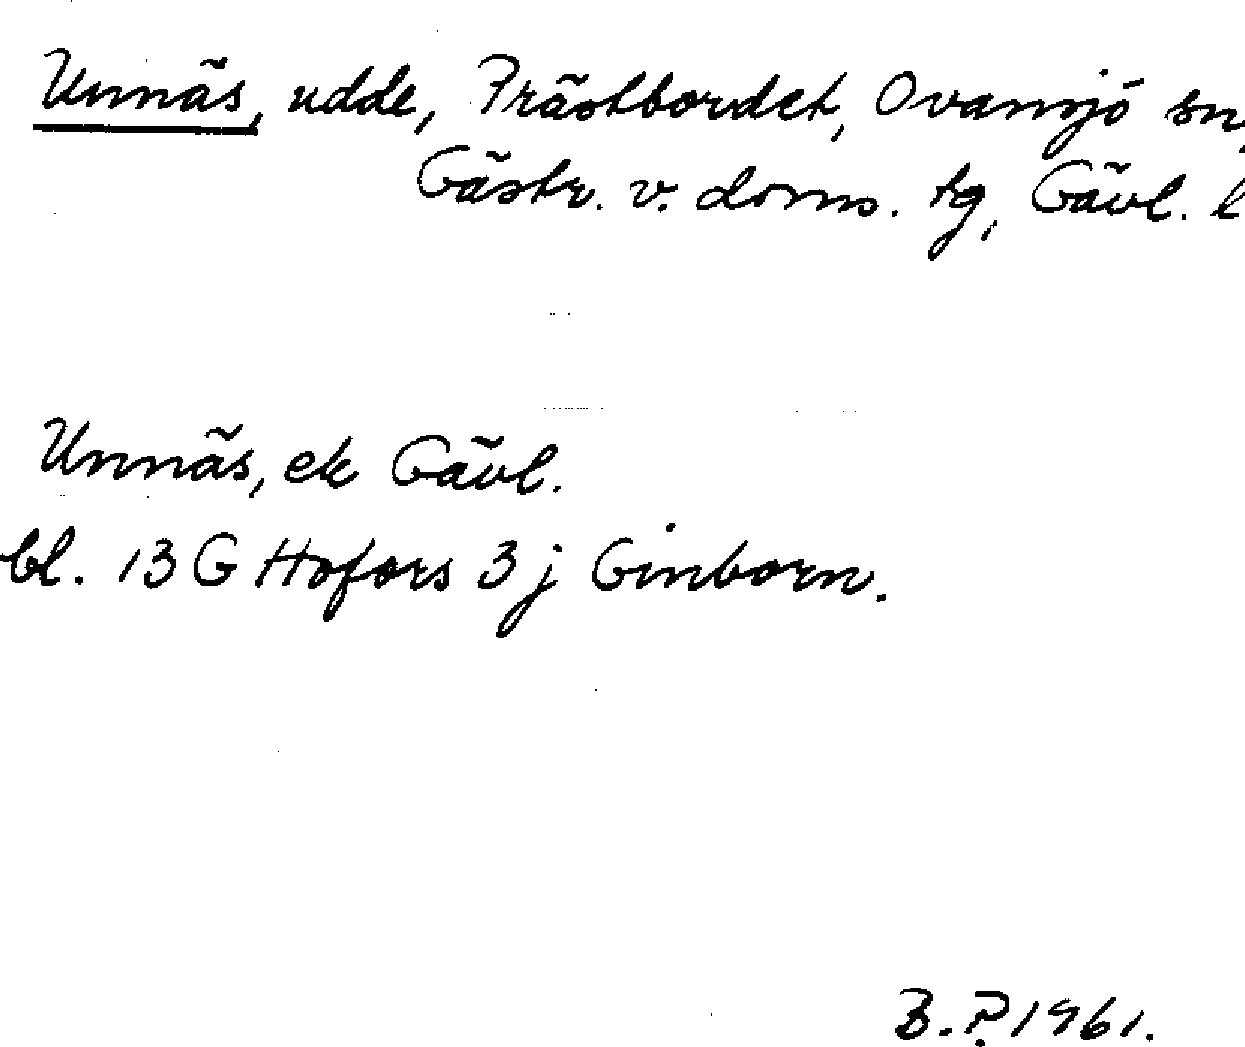 Unnäs, udde, Prästbordet, Ovansjö sn,
Gästr. v. doms. tg, Gävl. l
Unnäs, ek Gävl.
bl. 13 G Hofors 3 j Ginborn.
B. P. 1961.